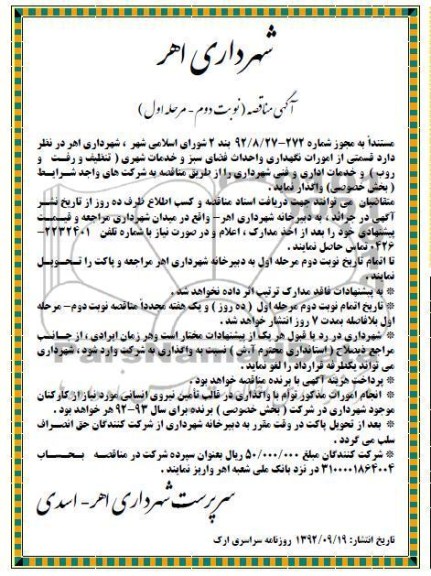 شهرداری اهر
آگهی مناقصه (نوبت دوم - مرحله اول)
مستنداً به مجوز شماره ۲۷۲-۹۲/۸/۲۷ بند ۲ شورای اسلامی شهر ، شهرداری اهر در نظر
دارد قسمتی از امورات نگهداری واحداث فضای سبز و خدمات شهری ( تنظیف و رفت و
روب ) و خدمات اداری و فنی شهرداری را از طریق مناقصه به شرکت های واجد شرایط
( بخش خصوصی) واگذار نماید .
متقاضیان می توانند جهت دریافت اسناد مناقصه و کسب اطلاع ظرف ده روز از تاریخ نشر
آگهی در جراند ، به دبیرخانه شهرداری اهر- واقع در میدان شهرداری مراجعه و قیمت
پیشنهادی خود را بعد از اخذ مدارک ، اعلام و در صورت نیاز با شماره تلفن ۲۲۳۲۴۰۱-
۰۴۲۶ تماس حاصل نمایند .
تا اتمام تاریخ نوبت دوم مرحله اول به دبیرخانه شهرداری اهر مراجعه و پاکت را تحویل
نمایند .
※ به پیشنهادات فاقد مدارک ترتیب اثر داده نخواهد شد .
※ تاریخ اتمام نوبت دوم مرحله اول ( ده روز ) و یک هفته مجدداً مناقصه نوبت دوم- مرحله
اول بلافاصله بمدت ۷ روز انتشار خواهد شد .
※ شهرداری در رد یا قبول هر یک از پیشنهادات مختار است وهر زمان ایرادی ، از جانب
مراجع ذیصلاح ( استانداری محترم آ.ش ) نسبت به واگذاری به شرکت وارد شود ، شهرداری
می تواند یکطرفه قرارداد را لغو نماید .
※ پرداخت هزینه آگهی با برنده مناقصه خواهد بود .
※ انجام امورات مذکور توام با واگذاری در قالب تأمین نیروی انسانی مورد نیاز از کارکنان
موجود شهرداری در شرکت ( بخش خصوصی ) برنده برای سال ۹۳-۹۲ هر خواهد بود .
※ بعد از تحویل پاکت در وقت مقرر به دبیرخانه شهرداری از شرکت کنندگان حق انصراف
سلب می گردد .
※ شرکت کنندگان مبلغ ۵۰/۰۰۰/۰۰۰ ریال بعنوان سپرده شرکت در مناقصه بحساب
۳۱۰۰۰۰۱۸۶۴۰۰۴ در نزد بانک ملی شعبه اهر واریز نمایند .
سرپرست شهرداری اهر - اسدی
تاریخ انتشار: ۱۳۹۲/۰۹/۱۹ روزنامه سراسری ارک